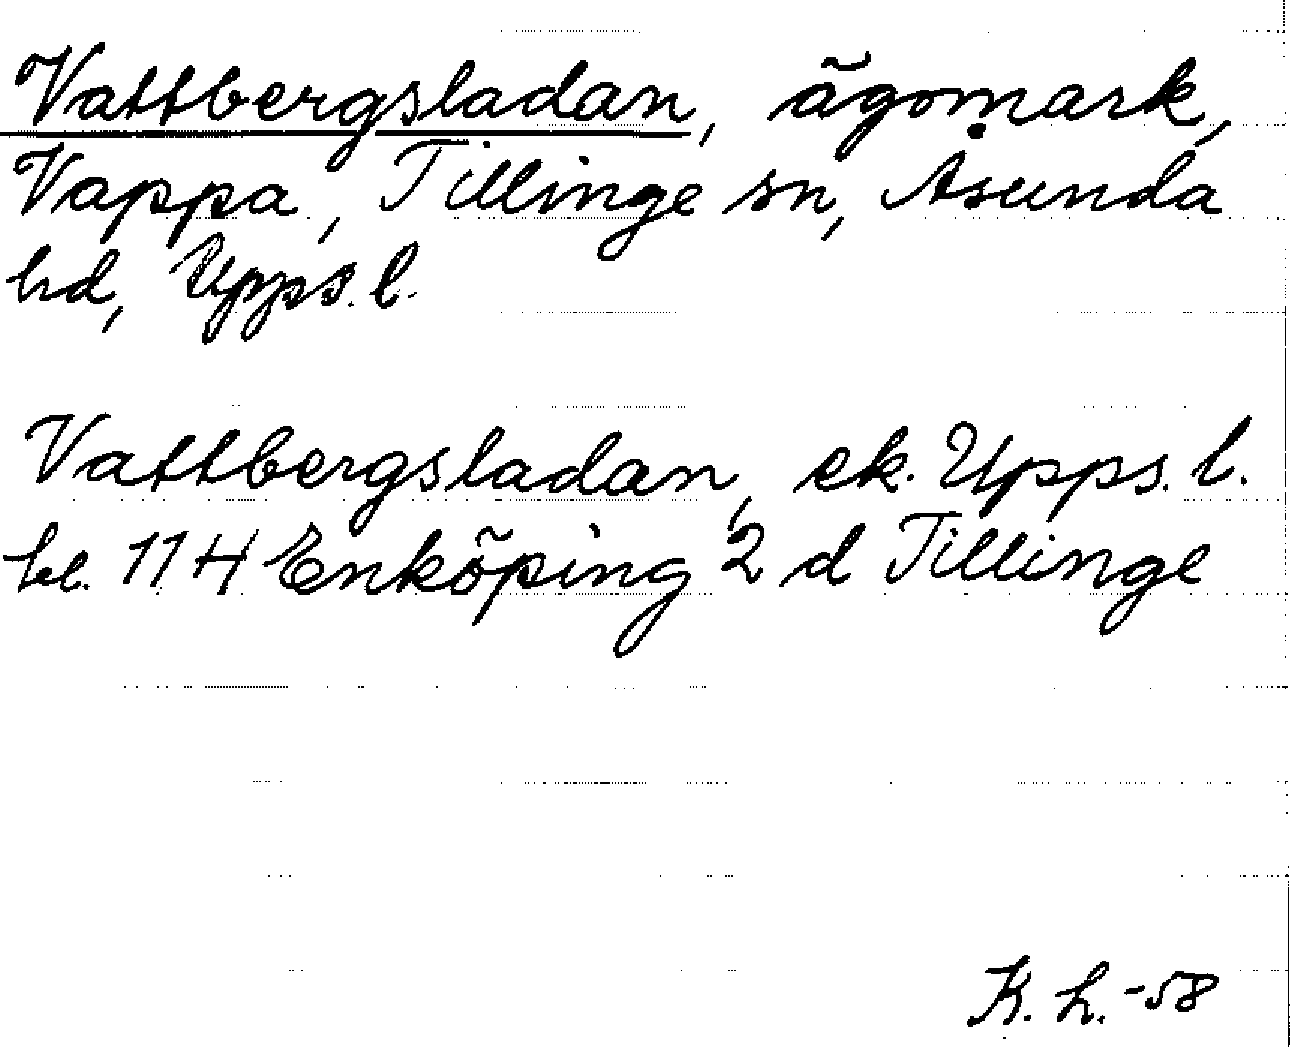 Vattbergsladan, ägomark,
Vappa, Tillinge sn, Åsunda
hd, Upps. l.
Vattbergsladan, ek. Upps. l.
bl. 11 H Enköping 2 d Tillinge
K. L. -58